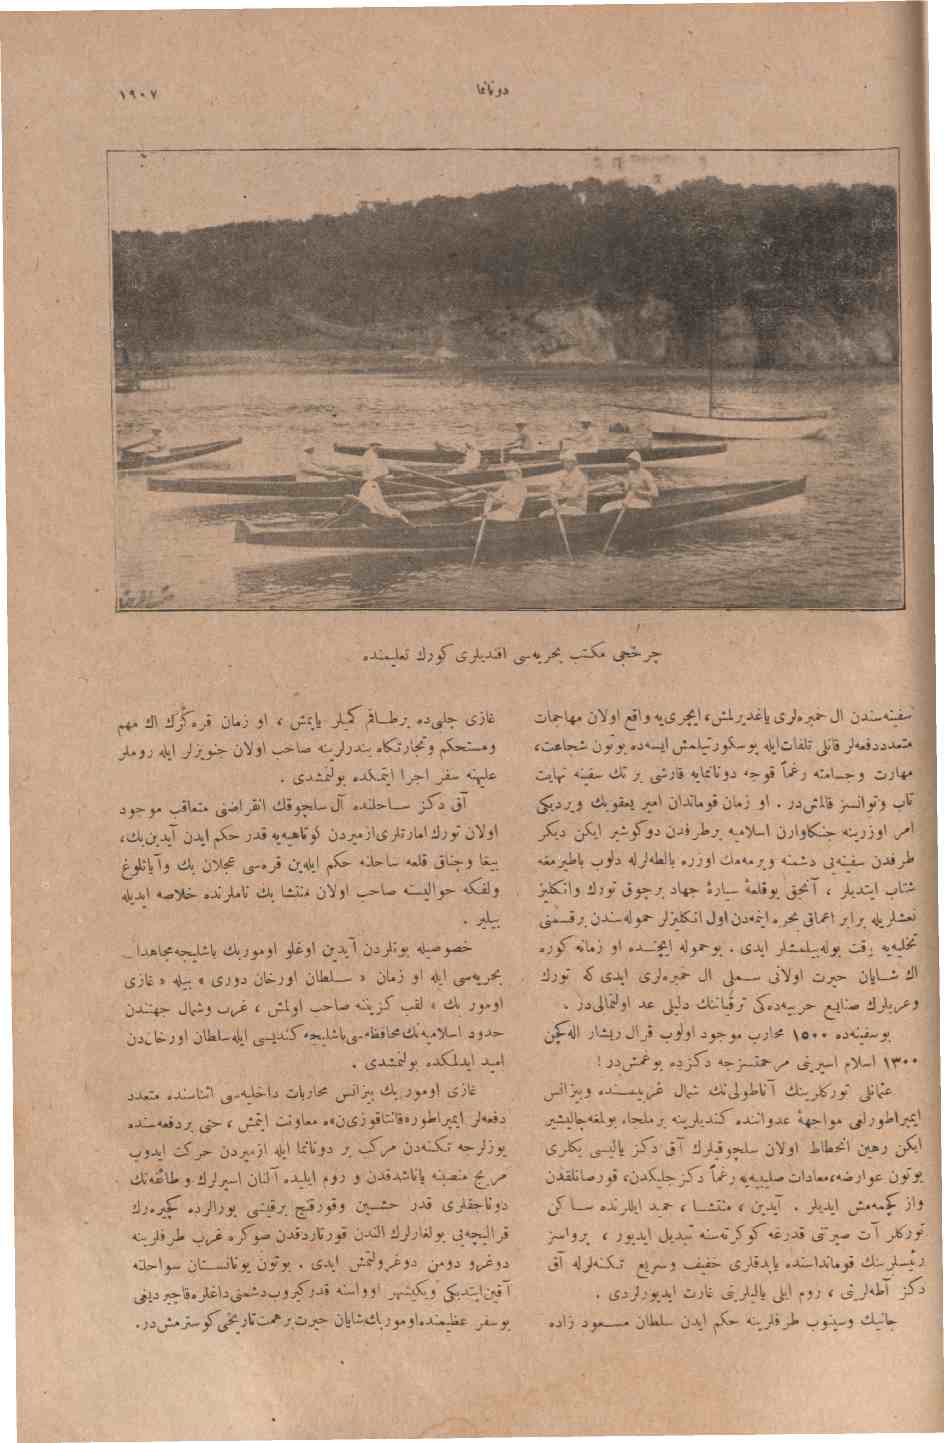 دوناما
١٩٠٧
چرخجی مکتب بحریه‌سی افندیلری کورك تعلیمنده
سفینه‌سندن ال خمبره‌لری یاغدیرلمش، ایچری‌یه واقع اولان مهاجمات
متعدد دفعه‌لر قانلی تلفات‌ایله پوسکورتیلمش ایسه‌ده بوتون شجاعت،
مهارت وجسامته رغماً قوجه دونانمایه قارشی بر تك سفینه نهایت
تاب وتوانسز قالمش‌در. او زمان قوماندان امیر یعقوبك ویردیکی
امر اوزرینه جنکاوارن اسلامیه برطرفدن دوکوشیر ایکن دیکر
طرفدن سفینه‌یی دشمنه ویرمه‌مك اوزره بالطه‌لرله دلوب باطیرمغه
شتاب ایتدیلر، آنجق بوقلعۀ سیارۀ جهاد برچوق تورك وانکلیز
نعشلریله برابر اعماق بحره اینمه‌دن اول انکلیزلر حموله‌سندن برقسمنی
تخلیه‌یه وقت بوله‌بیلمشلر ایدی. بوحموله ایچنده او زمانه کوره
اك شایان حیرت اولانی سملی ال خمبره‌لری ایدی که تورك
وعربلرك صنایع حربیه‌ده‌کی ترقیاتنك دلیلی عد اولنمالی‌در.
بوسفینه‌ده ١٥٠٠ محارب موجود اولوب قرال ریشار اله‌کچن
١٣٠٠ اسلام اسیرینی مرحمتسزجه دکزده بوغمش‌در!
عثمانلی تورکلرینك آناطولی‌نك شمال غربیسنده وبیزانس
ایمپراطورلغی مواجهۀ عدواننده کندیلرینه برملجاء بولمغه‌چالیشیر
ایکن رهین انحطاط اولان سلچوقیلرك آق دکز یالیسی بکلری
بوتون عوارضه، معادات صلیبیه‌یه رغماً دکزجیلکدن، قورصانلقدن
واز کچمه‌مش ایدیلر. آیدین، منتشا، حمید ایللرنده ساکن
تورکلر آت صیرتنی قدرغه کوکرته‌سنه تبدیل ایدیور، پرواسز
رئیسلرینك قومانداسنده یاپدقلری خفیف وسریع تکنه‌لرله آق
دکز آطه‌لرینی، روم ایلی یالیلرینی غارت ایدیورلردی.
جانیك وسینوب طرفلرینه حکم ایدن سلطان مسعود زاده
غازی چلبی‌ده برطاقم کمیلر یاپمش، او زمان قره‌دکزك اك مهم
ومستحکم وتجارتکاه بندرلرینه صاحب اولان جنویزلر ایله روملر
علیهنه سفر اجرا ایتمکده بولنمشدی.
آق دکز ساحلنده آل سلچوقك انقراضنی متعاقب موجود
اولان تورك امارتلری‌ازمیردن کوتاهیه‌یه قدر حکم ایدن آیدین‌بك،
بیغا وچناق قلعه ساحلنه حکم ایله‌ین قره‌سی عجلان بك وآیاتلوغ
ولفکه حوالیسنه صاحب اولان منتشا بك ناملرنده خلاصه ایدیله
بیلیر.
خصوصیله بونلردن آیدین اوغلو اوموربك باشلیجه‌مجاهدا
بحریه‌سی ایله او زمان « سلطان اورخان دوری » بیله « غازی
اومور بك » لقب کزیننه صاحب اولمش، غرب وشمال جهتندن
حدود اسلامیه‌نك‌محافظه‌سی‌باشلیجه کندیسی ایله‌سلطان اورخان‌دن
امید ایدلمکده بولنمشدی.
غازی اوموربك بیزانس محاربات داخلیه‌سی اثناسنده متعدد
دفعه‌لر ایمپراطوره‌قانتاقوزی‌ن‌ه معاونت ایتمش، حتی بردفعه‌سنده
یوزلرجه تکنه‌دن مرکب بر دونانما ایله ازمیردن حرکت ایدوب
مریچ منصبنه یاناشدقدن و روم ایلیده آلنان اسیرلرك وطائفه‌نك
دوناجقلری قدر حشین وقورقنج برقیشی بورالرده کچیره‌رك
قرالیچه‌یی بولغارلرك الندن قورتاردقدن صوکره غرب طرفلرینه
دوغرو دومن دوغرولتمش ایدی. بوتون یونانستان سواحلنه
آقین‌ایتدیکی ویکیشهر اوواسنه قدرکیروب‌دشمنی‌داغلره‌قاچیردیغی
بوسفر عظیمنده‌اوموربك‌شایان حیرت‌برهمت‌تاریخی‌کوسترمش‌در.